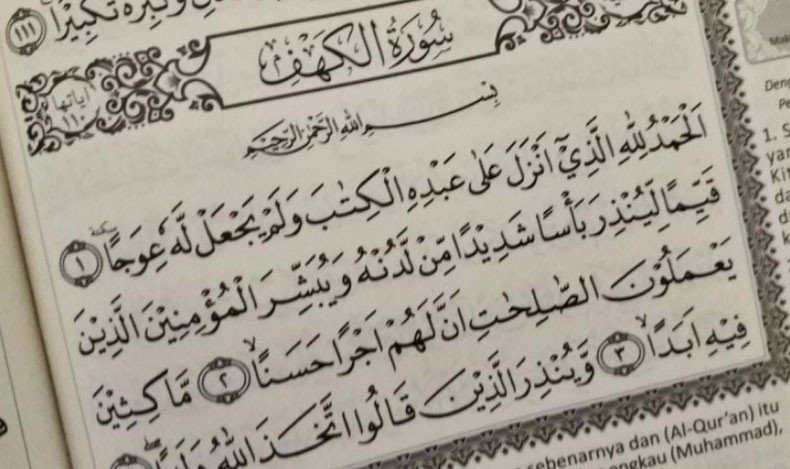 وَكَبِّرْهُ تَكْبِيْرًا ١١١
سُوْرَةُ الْكَهْفِ
اٰيَاتُهَا ١١٠
بِسْمِ اللّٰهِ الرَّحْمٰنِ الرَّحِيْمِ
اَلْحَمْدُ لِلّٰهِ الَّذِيْٓ اَنْزَلَ عَلٰى عَبْدِهِ الْكِتٰبَ وَلَمْ يَجْعَلْ لَّهٗ عِوَجًا ۜ ١
قَيِّمًا لِّيُنْذِرَ بَأْسًا شَدِيْدًا مِّنْ لَّدُنْهُ وَيُبَشِّرَ الْمُؤْمِنِيْنَ الَّذِيْنَ
يَعْمَلُوْنَ الصّٰلِحٰتِ اَنَّ لَهُمْ اَجْرًا حَسَنًاۙ ٢ مَّاكِثِيْنَ
فِيْهِ اَبَدًاۙ ٣ وَّيُنْذِرَ الَّذِيْنَ قَالُوا اتَّخَذَ اللّٰهُ وَلَدًا
Deng
Pe
1. S
yan
Kit
da
di
sebenarnya dan (Al-Qur'an) itu
engkau (Muhammad),